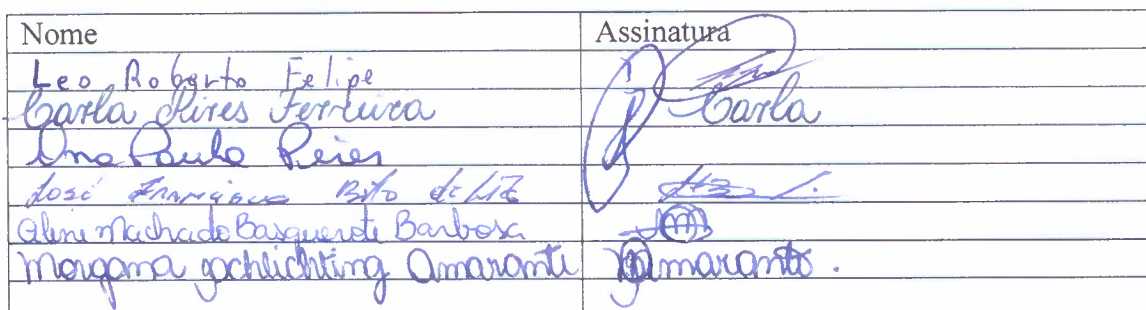 Nome Assinatura
Leo Roberto Felipe
Carla Pires Ferreira Carla
Ana Paula Peres
José Francisco
Aline Machado Basquerote Barbosa
Morgana Schlichting Amarante Amarante.